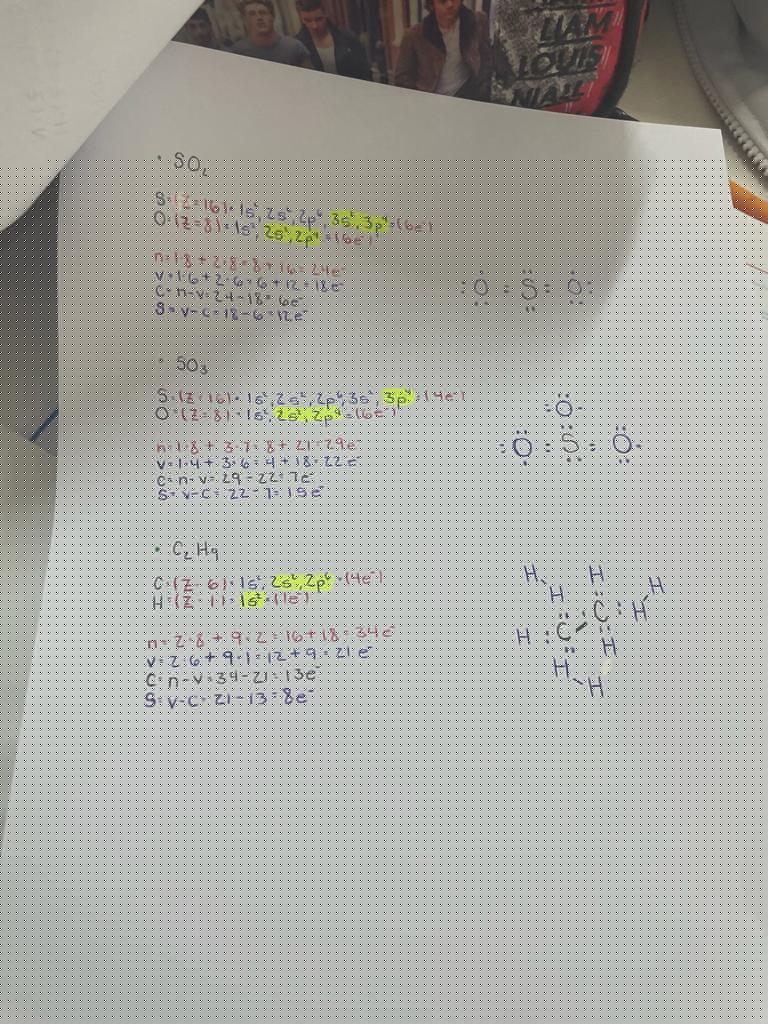 LIAM
LOUIS
NIALL
• SO₂
S:(Z=16)= 1s², 2s², 2p⁶, 3s², 3p⁴=(6e⁻)
O:(Z=8)= 1s², 2s², 2p⁴=(6e⁻)
n=1·8+2·8=8+16=24e⁻
v=1·6+2·6=6+12=18e⁻
C=n-v=24-18=6e⁻
S=v-C=18-6=12e⁻
:O:S:O:
• SO₃
S:(Z=16)= 1s², 2s², 2p⁶, 3s², 3p⁴=(4e⁻)
O:(Z=8)= 1s², 2s², 2p⁴=(6e⁻)
n=1·8+3·7=8+21=29e⁻
v=1·4+3·6=4+18=22e⁻
C=n-v=29-22=7e⁻
S=v-C=22-7=15e⁻
:O·
:O:S:O·
• C₂H₉
C:(Z=6)=1s², 2s², 2p⁶=(4e⁻)
H:(Z=1)=1s²=(1e⁻)
n=2·8+9·2=16+18=34e⁻
v=2·6+9·1=12+9=21e⁻
C=n-v=34-21=13e⁻
S=v-C=21-13=8e⁻
H H
H H
C : H
H : C
H
H
H